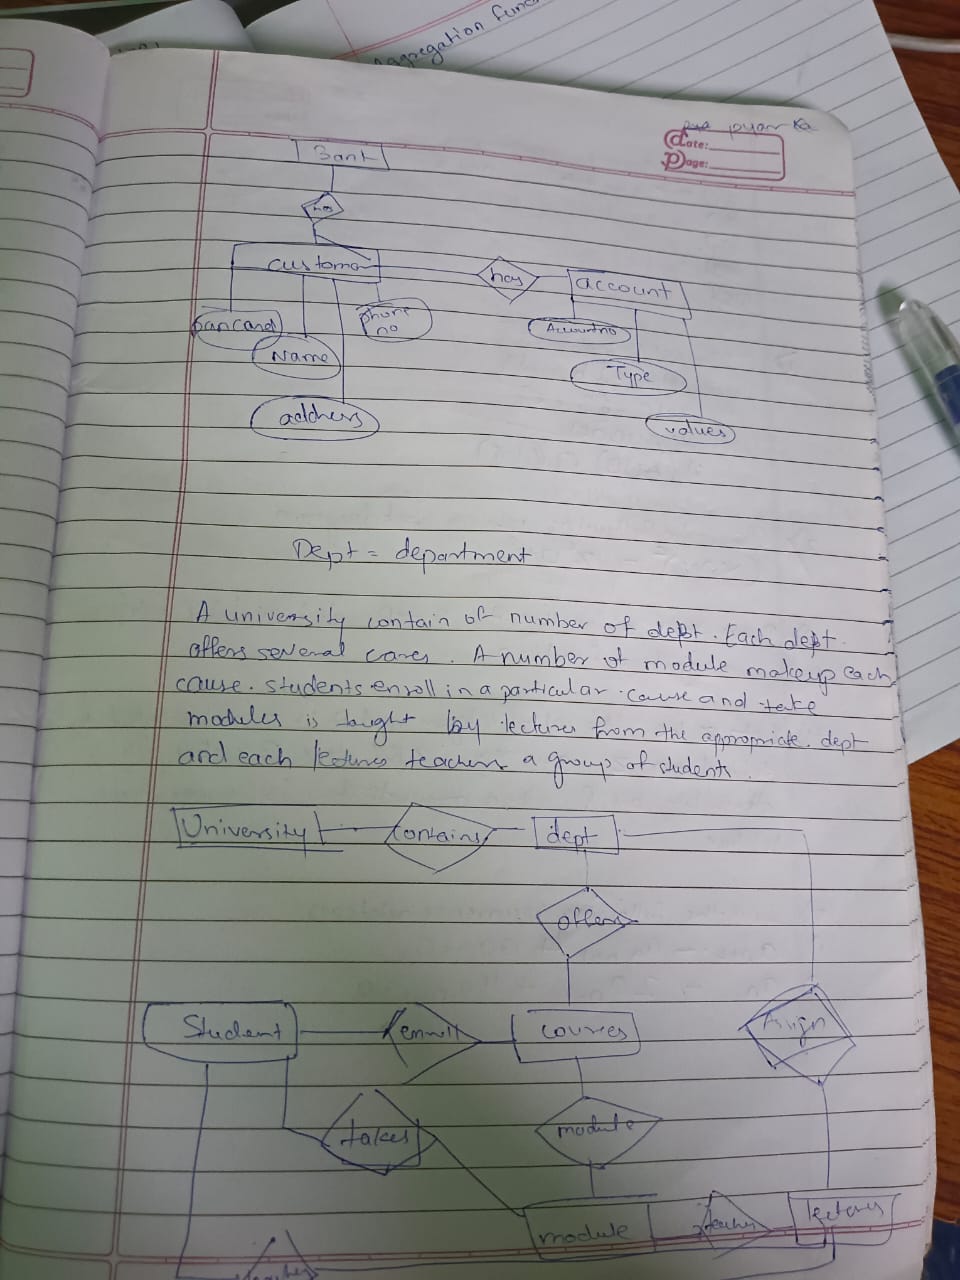 Aggregation func
pyar ka
Date:
Page:
Bank
has
customer
has
account
pancard
phone no
Account no
Name
Type
address
values
Dept = department
A university contain of number of dept. Each dept.
offers several cares. A number of module makeup each
cause. students enroll in a particular cause and take
modules is taught by lectures from the appropriate dept
and each lectures teachers a group of students.
University contains dept
offers
Student enroll courses Assign
takes module
module teacher lectures